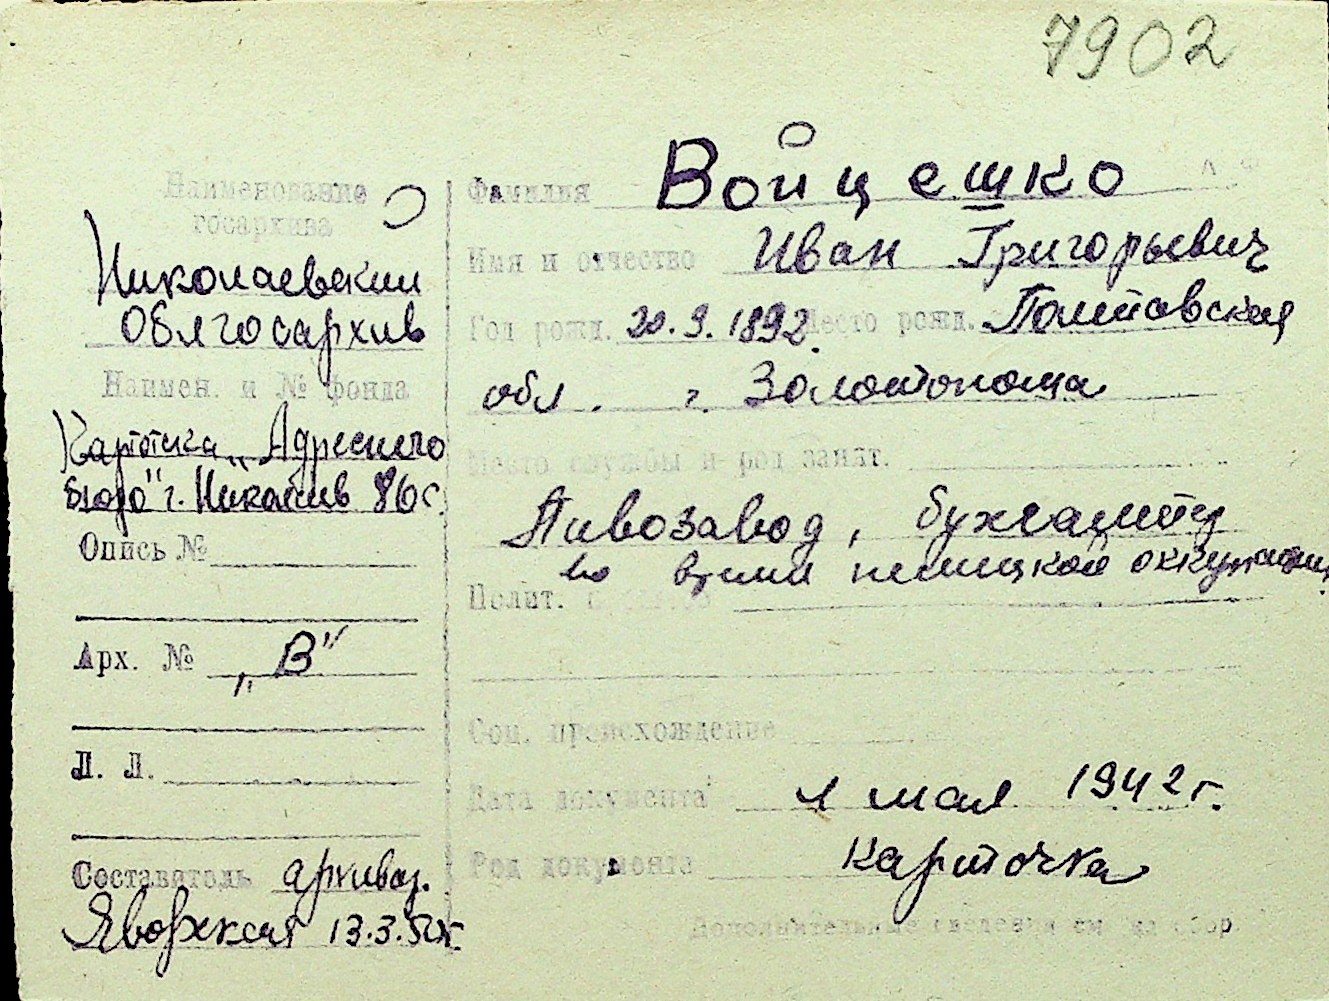 7902
Наименование
госархива
Николаевский
Облгосархив
Наимен. и № фонда
Картотека „Адресного
бюро" г. Николаев
Опись №
Арх. № „В"
Л. Л.
Составитель архивар.
Яворская 13.3.
Фамилия Войцешко
Имя и отчество Иван Григорьевич
Год рожд. 20.9.1892. Место рожд. Полтавская
обл. г. Золотоноша
Место службы и род занят.
Пивозавод, бухгалтер
во время немецкой оккупации
Полит.
Соц. происхождение
Дата документа 1 мая 1942 г.
Род документа карточка
Дополнительные сведения см на обор